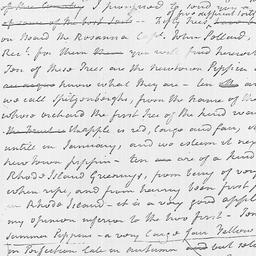 of the Country I proposed to send you a
of some of the best sorts - Fifty Trees,
on Board the Rosanna Capt. John Pollard,
Rec.t for them you will find herewith
Ten of these Trees are the Newtown Pippin
know what they are - ten
we call Spitzenberghs, from the name of the
whose orchard the first Tree of the kind was
apple is red, large and fair,
untill in January, and we esteem it next
newtown pippin - ten are of a kind
Rhode Island Greenings, from being of
when ripe, and from having been first
in Rhode Island - it is a very good apple
my opinion inferior to the two first - Ten
Summer Pippins - a very large fair Yellow
in Perfection late in autumn and but